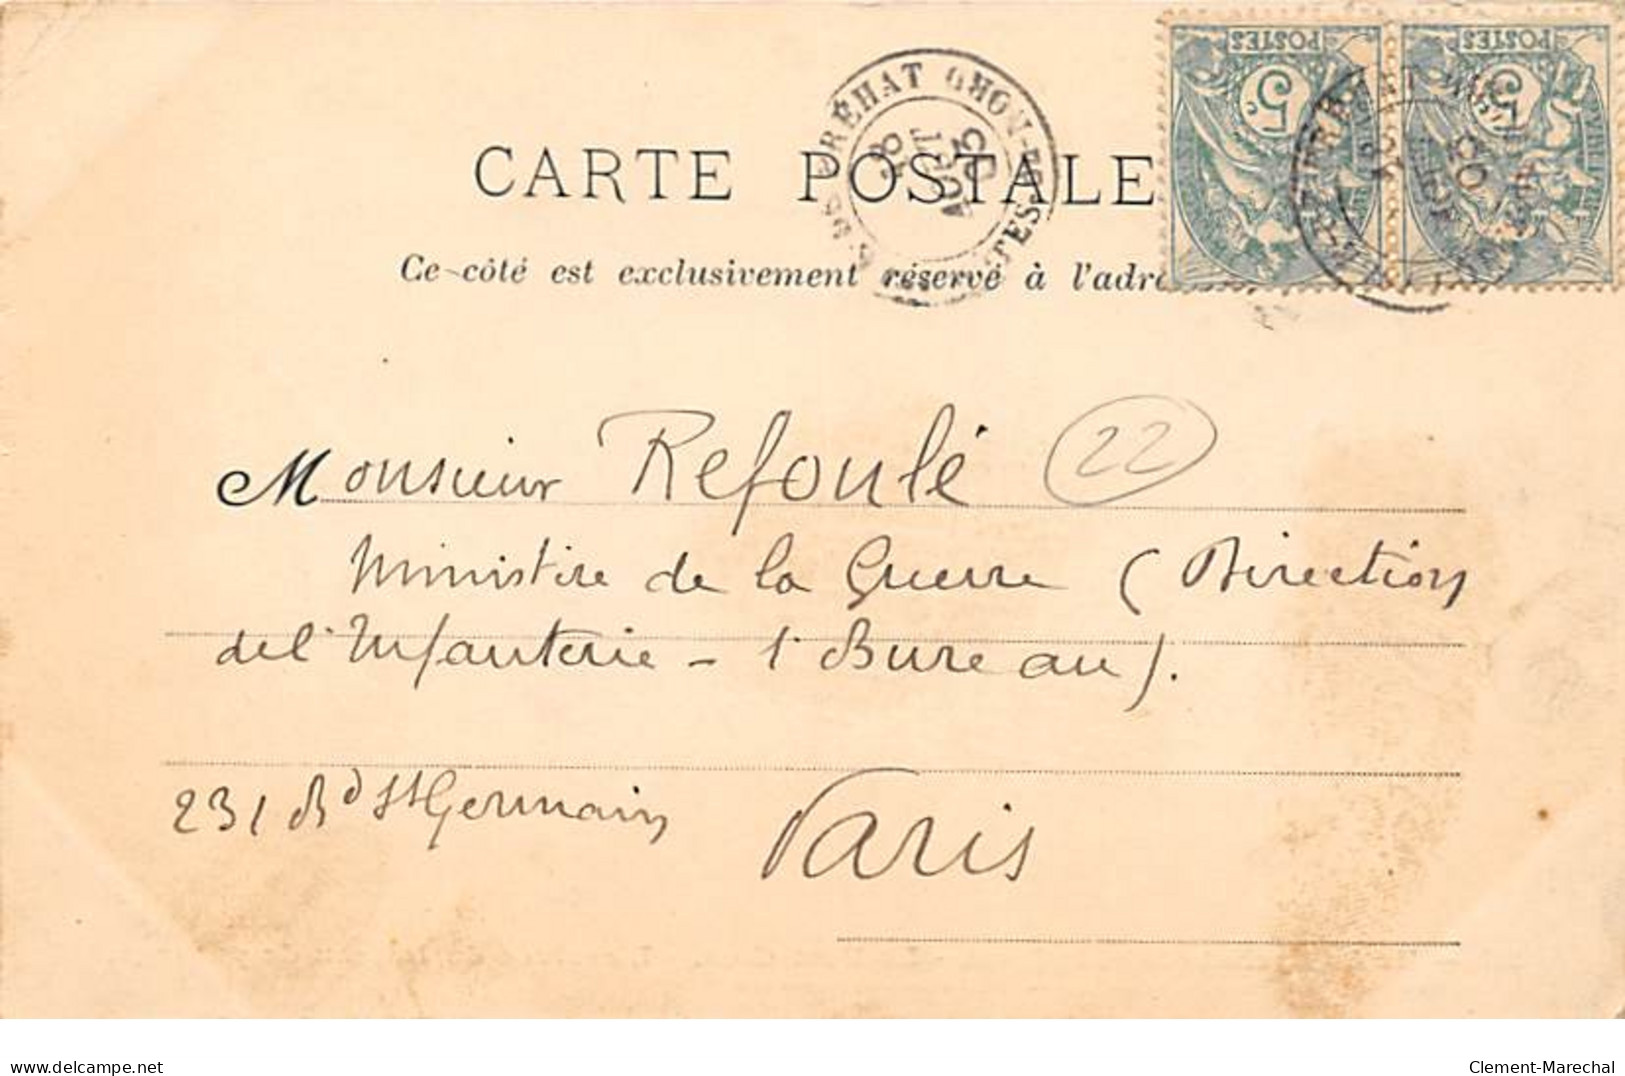 POSTES POSTES
5c 5
BRÉHAT
CARTE POSTALE
AOUT
03
Ce côté est exclusivement réservé à l'adre
Monsieur Refoulé 22
Ministère de la Guerre (Direction
de l'Infanterie - 1 Bureau).
231 Bd St Germain Paris
www.delcampe.net
Clement-Marechal